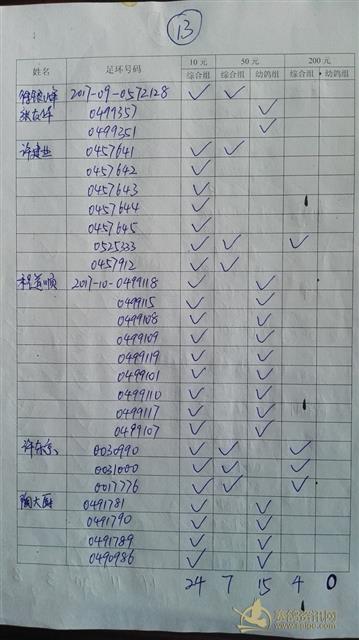 13
姓名 足环号码 10元 50元 200元
综合组 综合组 幼鸽组 综合组 幼鸽组
2017-09-0572128 ✓ ✓
0499357 ✓
0499351 ✓
许建业 0457641 ✓ ✓
0457642 ✓
0457643 ✓
0457644 ✓
0457645 ✓
0525333 ✓ ✓ ✓
0457912 ✓ ✓
程首顺 2017-10-0499118 ✓ ✓
0499115 ✓ ✓
0499108 ✓ ✓
0499109 ✓ ✓
0499119 ✓ ✓
0499101 ✓ ✓
0499110 ✓ ✓
0499117 ✓ ✓
0499107 ✓ ✓
0030990 ✓ ✓ ✓
0031000 ✓ ✓ ✓
0017776 ✓ ✓ ✓
陶大厨 0491781 ✓ ✓
0491790 ✓ ✓
0491789 ✓ ✓
0490986 ✓ ✓
24 7 15 4 0